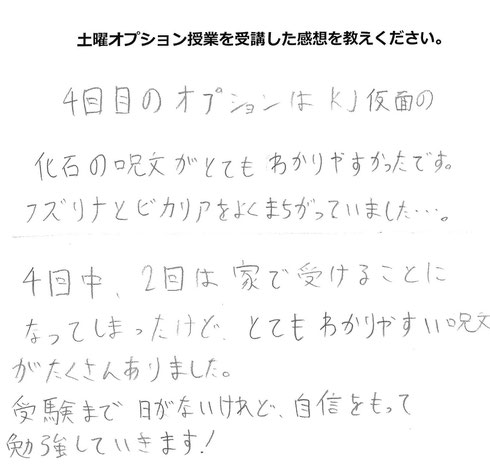 土曜オプション授業を受講した感想を教えください。
4回目のオプションはKJ仮面の
化石の呪文がとてもわかりやすかったです。
フズリナとビカリアをよくまちがっていました…。
4回中、2回は家で受けることに
なってしまったけど、とてもわかりやすい呪文
がたくさんありました。
受験まで日がないけれど、自信をもって
勉強していきます!